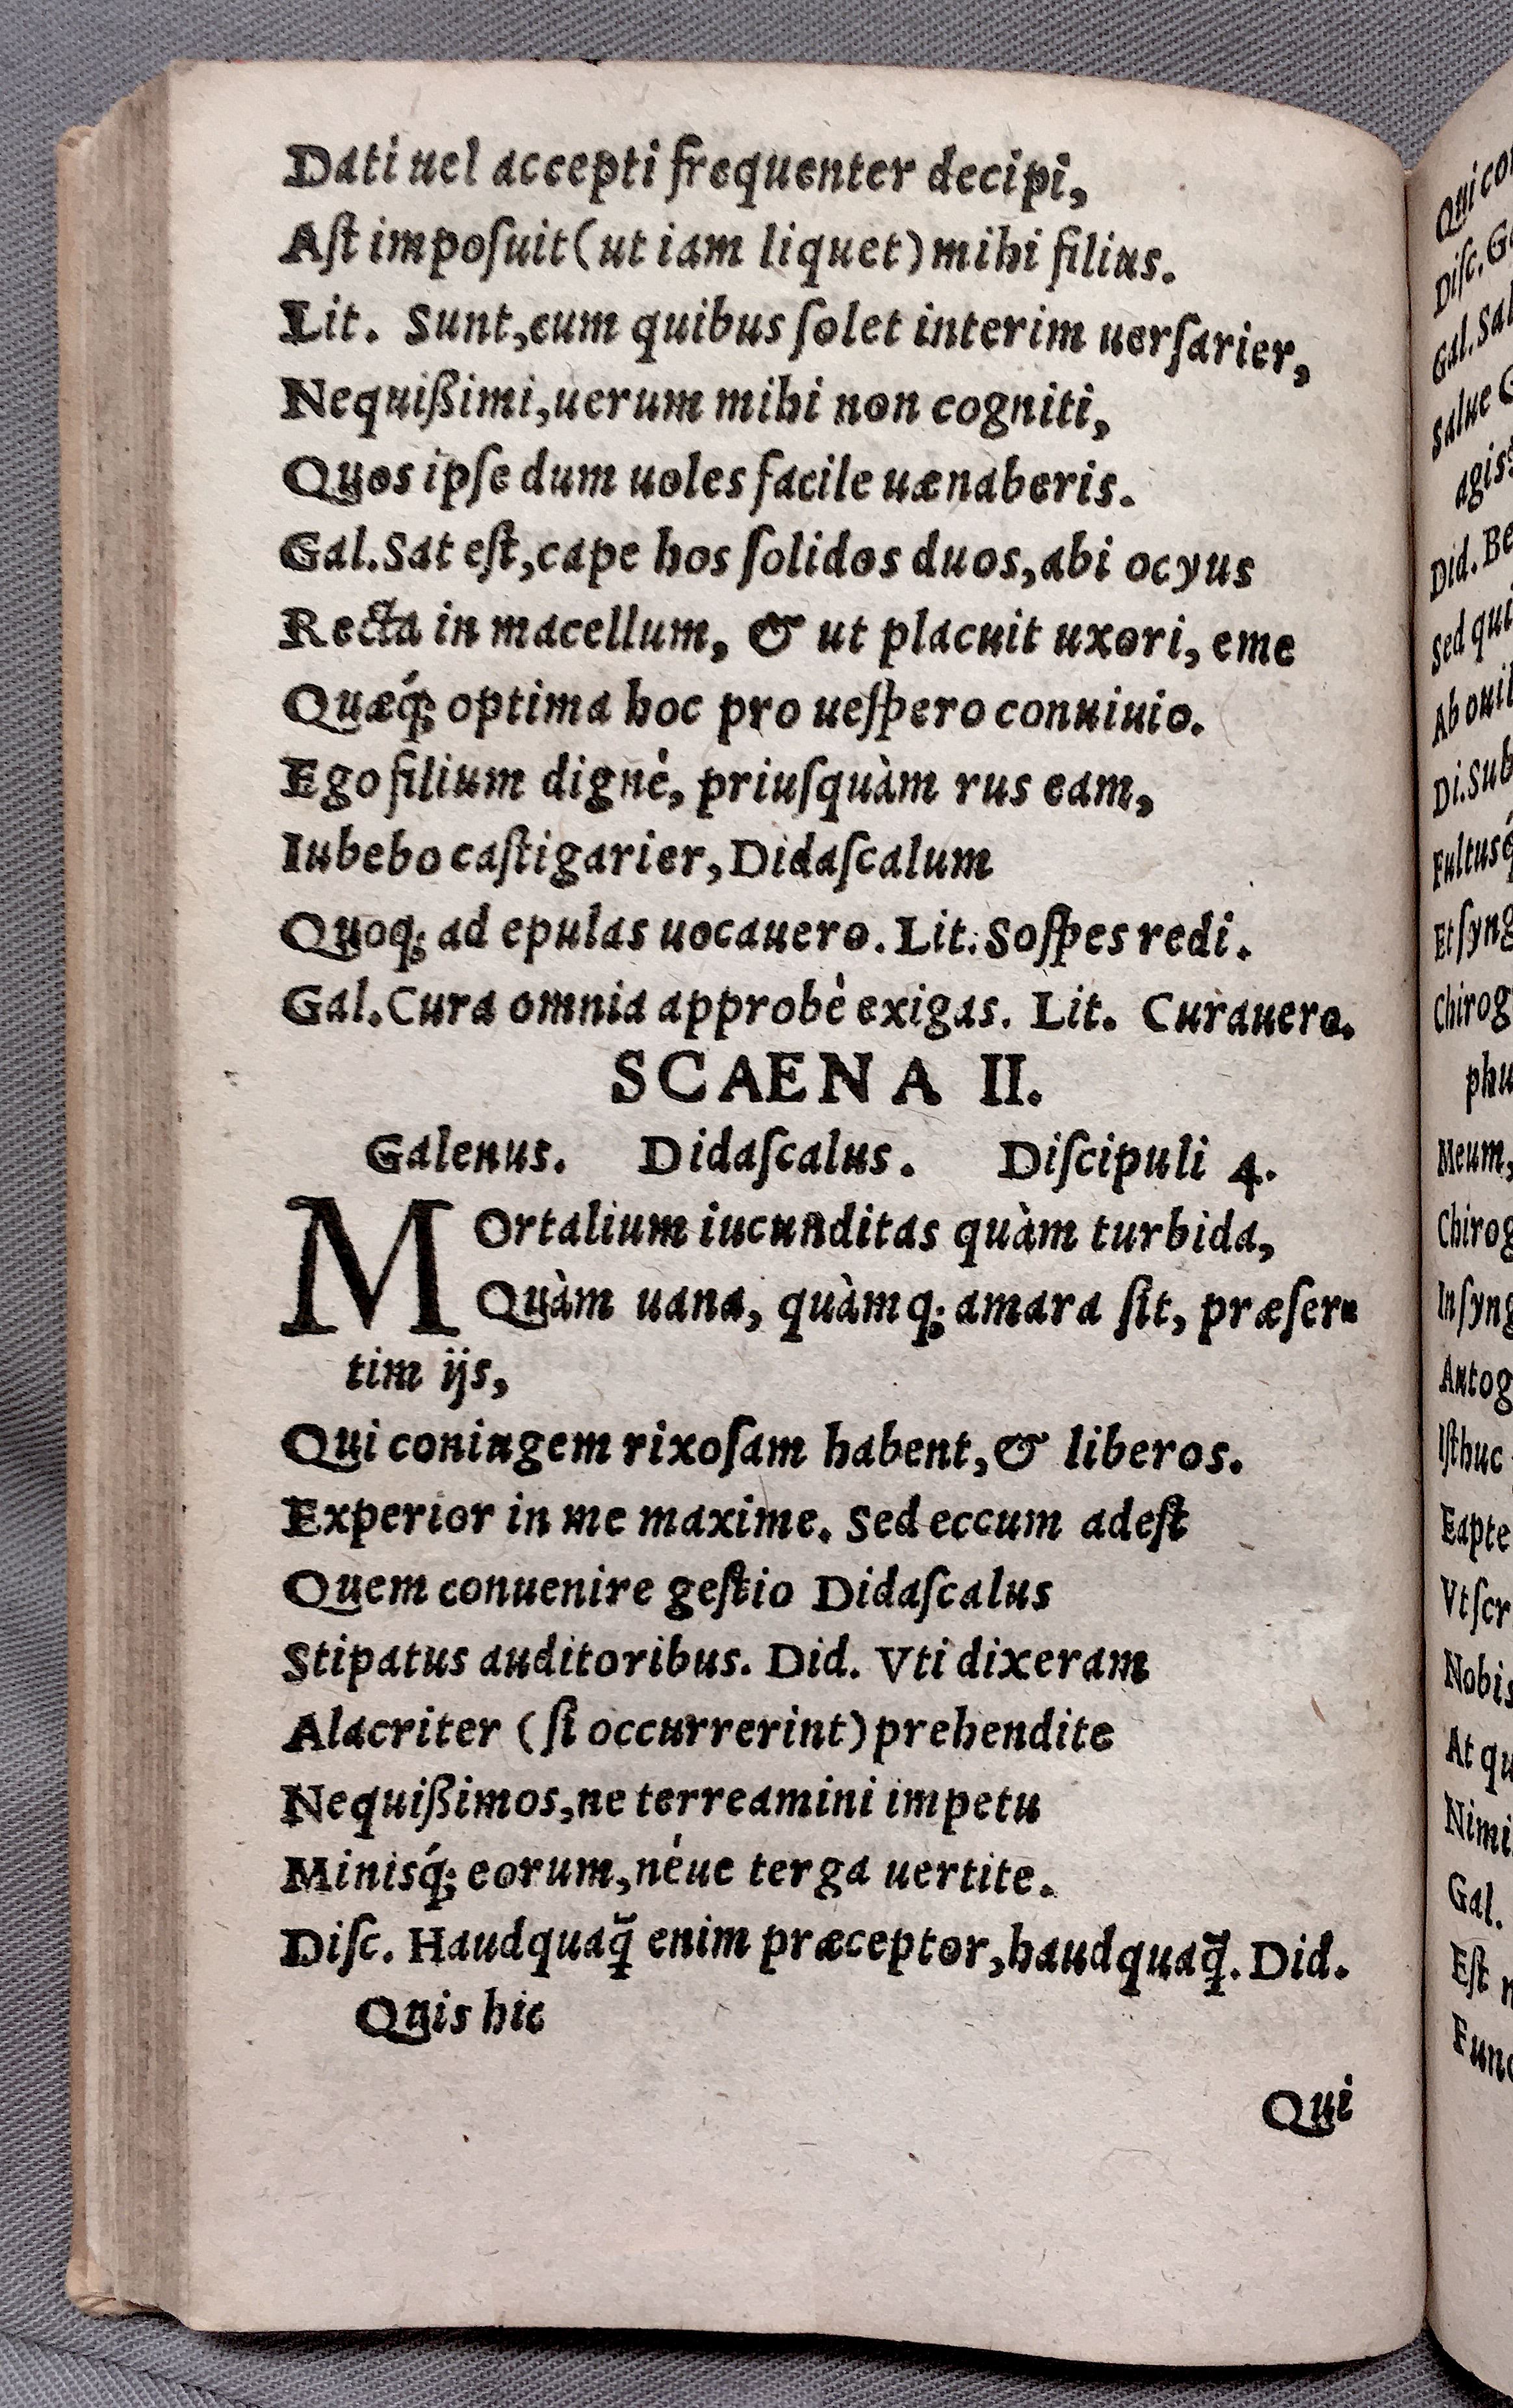 Dati uel accepti frequenter decipi,
Aſt impoſuit (ut iam liquet) mihi filius.
Lit. Sunt, cum quibus ſolet interim uerſarier,
Nequißimi, uerum mihi non cogniti,
Quos ipſe dum uoles facile uænaberis.
Gal. Sat eſt, cape hos ſolidos duos, abi ocyus
Recta in macellum, & ut placuit uxori, eme
Quæq́; optima hoc pro ueſpero conuiuio.
Ego filium dignè, priuſquàm rus eam,
Iubebo caſtigarier, Didaſcalum
Quoq; ad epulas uocauero. Lit. Soſpes redi.
Gal. Cura omnia approbè exigas. Lit. Curauero.
SCAENA II.
Galenus. Didaſcalus. Diſcipuli 4.
MOrtalium iucunditas quàm turbida,
Quàm uana, quàmq; amara ſit, præſer-
tim ijs,
Qui coniugem rixoſam habent, & liberos.
Experior in me maxime. Sed eccum adeſt
Quem conuenire geſtio Didaſcalus
Stipatus auditoribus. Did. Vti dixeram
Alacriter (ſi occurrerint) prehendite
Nequißimos, ne terreamini impetu
Minisq́; eorum, néue terga uertite.
Diſc. Haudquaq̃ enim præceptor, haudquaq̃. Did.
Quis hic
Qui
Qui
Diſc. G
Gal. Sal
Salue
agis
Did. Be
Sed qui
Ab ouil
Di. Sub
Fultusq́
Et ſyng
Chirog
phu
Meum,
Chirog
In ſyng
Antog
Iſthuc
Eapte
Vt ſcr
Nobis
At qu
Nimi
Gal.
Eſt
Func